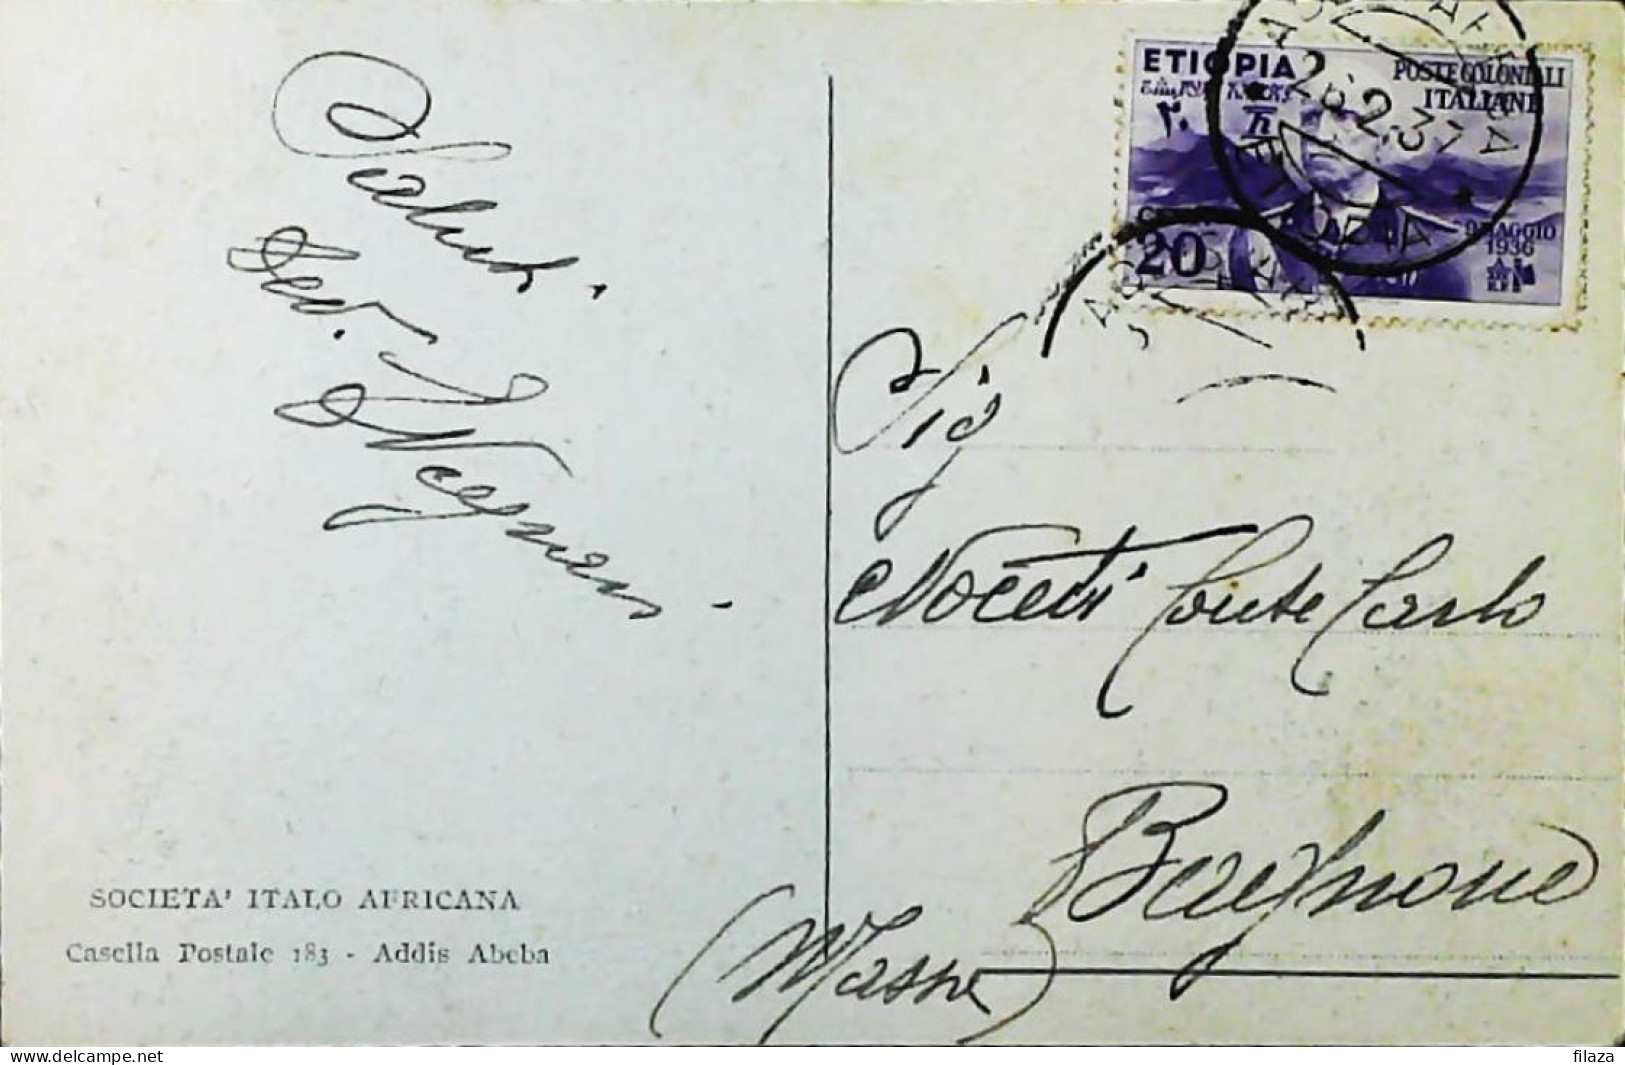 Saluti.
Dev.
SOCIETA' ITALO AFRICANA
Casella Postale 183 - Addis Abeba
ETIOPIA
POSTE COLONIALI
ITALIANE
26.2.37
ETIOPIA
20
9 MAGGIO
1936
Sig
Noceti Conte Carlo
Bagnone
(Massa)
https://www.delcampe.net
filaza